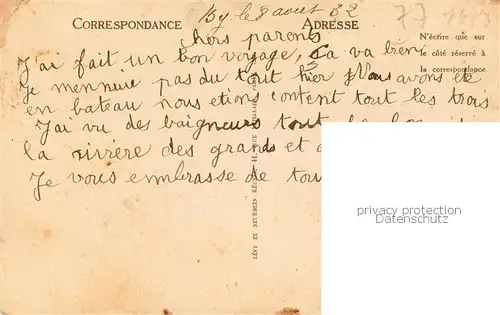 CORRESPONDANCE
ADRESSE
By le 8 aout 32
77
chers parents
N'écrire que sur
le côté réservé à
la correspondance
J'ai fait un bon voyage, ça va bien,
Je mennuie pas du tout hier Nous avons été
en bateau nous etions content tout les trois
J'ai vu des baigneurs tout
la rivière des grands et
Je vous embrasse de tou
LÉVY ET NEURDEIN RÉUNIS, 44, RUE LETELLIER, PARIS
privacy protection
Datenschutz